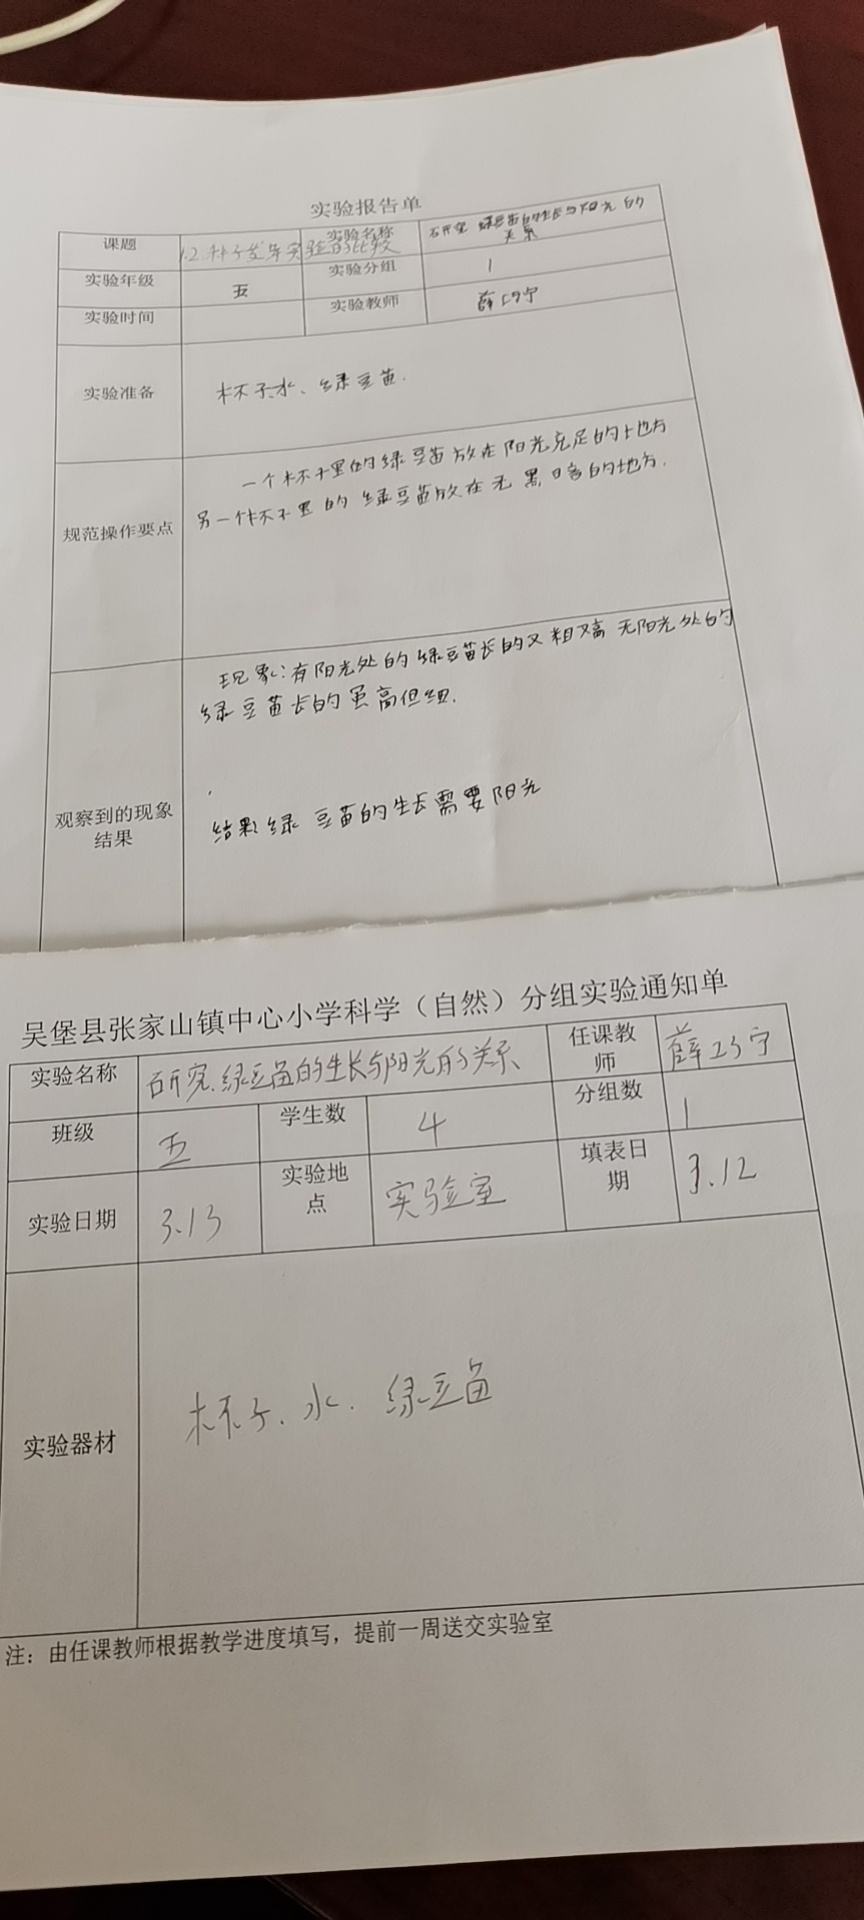 实验报告单
课题 1.2.种子发芽实验的比较 实验名称 研究 绿豆苗的生长与阳光的
关系
实验年级 五 实验分组 1
实验时间 实验教师 薛巧宁
实验准备 杯子.水、绿豆苗.
一个杯子里的绿豆苗放在阳光充足的地方
另一个杯子里的绿豆苗放在无黑暗的地方.
规范操作要点
现象:有阳光处的绿豆苗长的又粗又高 无阳光处的
绿豆苗长的虽高但细.
观察到的现象
结果
结果绿豆苗的生长需要阳光
吴堡县张家山镇中心小学科学（自然）分组实验通知单
实验名称 研究.绿豆苗的生长与阳光的关系 任课教
师 薛巧宁
班级 五 学生数 4 分组数 1
实验日期 3.13 实验地
点 实验室 填表日
期 3.12
实验器材 杯子、水、绿豆苗
注：由任课教师根据教学进度填写，提前一周送交实验室